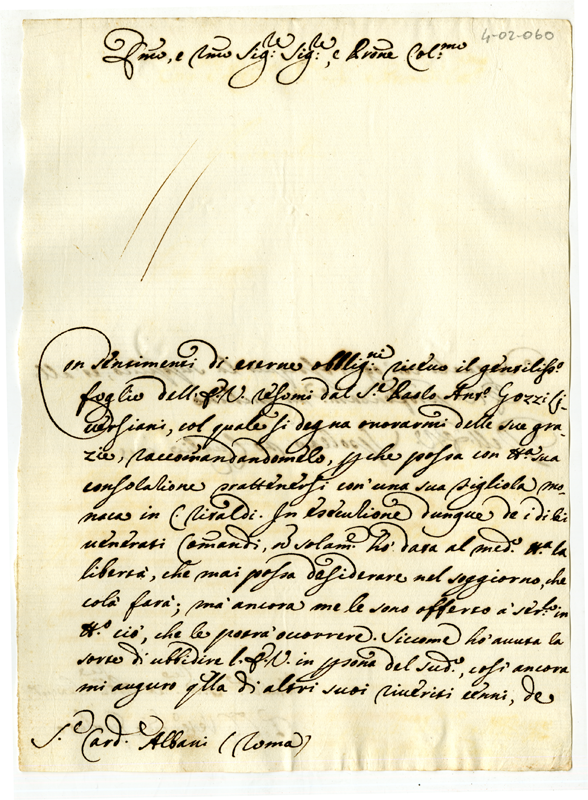 4-02-060
Emo, e Rmo Sig.re Sig.re, e Prone Col.mo
Con sentimenti di eterne obblig.ni ricevo il gentiliss.o
foglio dell'E.V. resomi dal S.r Paolo Ant.o Gozzi
versiani, col quale si degna onorarmi delle sue gra-
zie, raccomandandomelo, p che possa con tta sua
consolatione trattenersi con una sua figliola mo-
naca in C. Tiraldi. In esecutione dunque de i di lei
venerati Comandi, n solam.e hò data al med.o tta la
libertà, che mai possa desiderare nel soggiorno, che
colà farà; mà ancora me le sono offerto à in
tto ciò, che le potrà occorrere. Siccome hò avuta la
sorte di ubbidire l'E.V. in psona del sud.o, così ancora
mi auguro qlla di altri suoi riveriti cenni, de
S.r Card.e Albani (Roma)